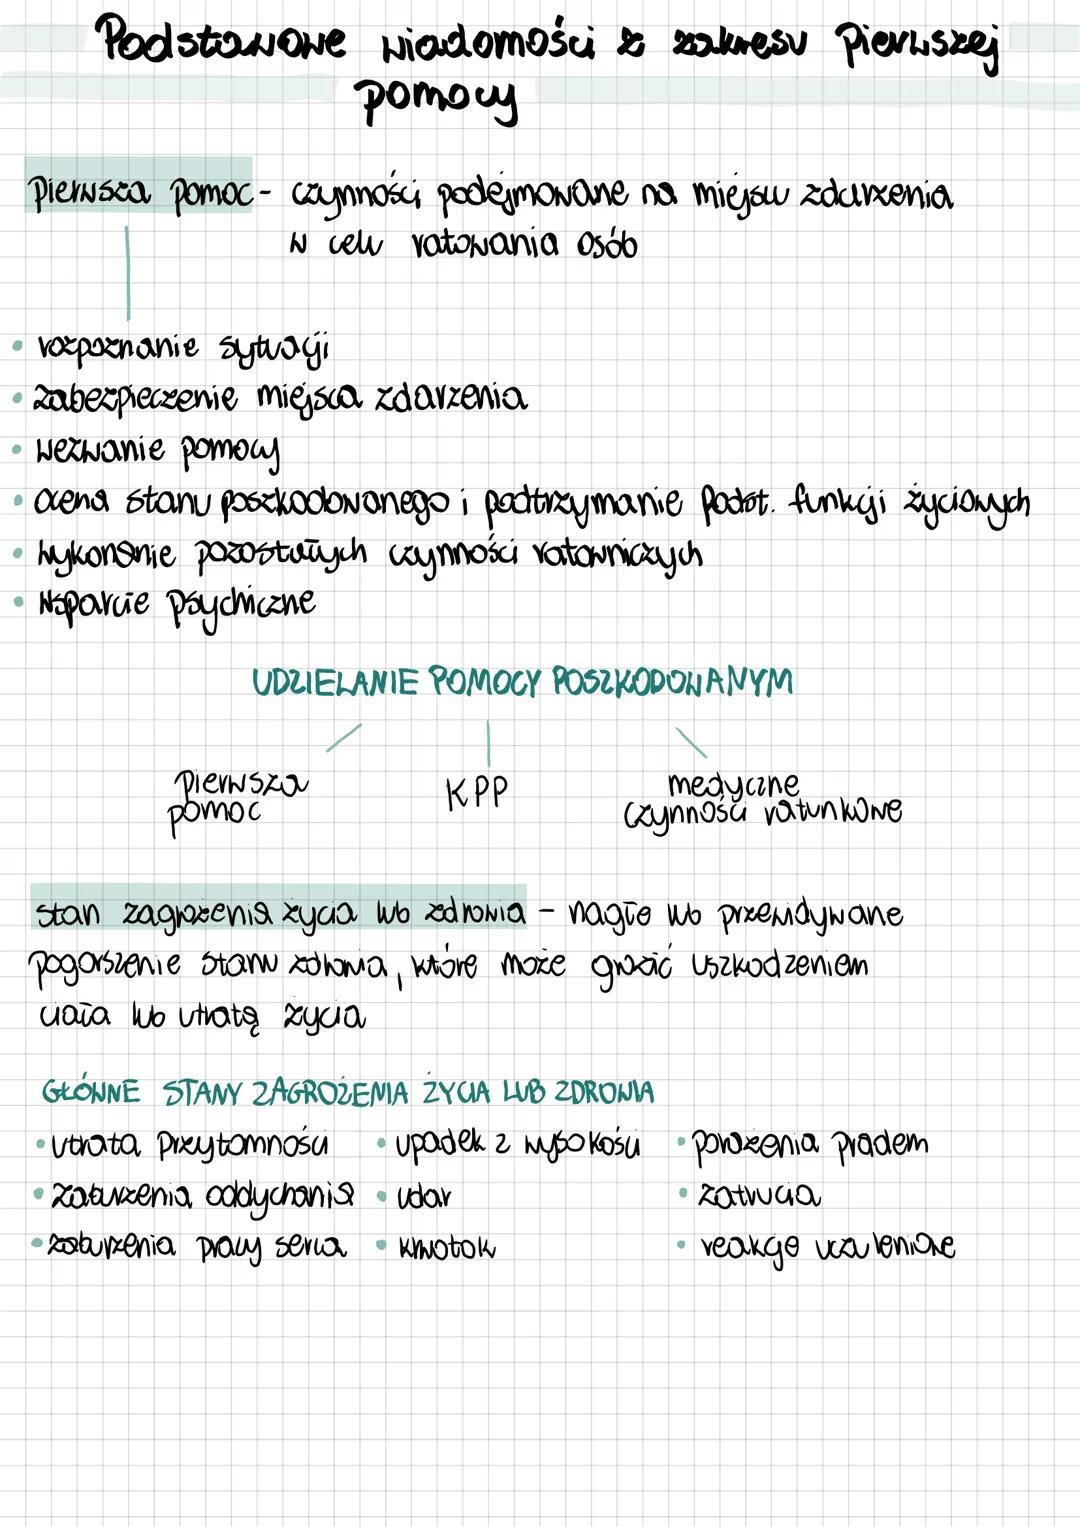 Podstawowe wiadomości z zakresu pierwszej
pomocy
Pierwsza pomoc - czynności podejmowane na miejscu zdarzenia
w celu ratowania osób
• rozpoznanie sytuacji
• zabezpieczenie miejsca zdarzenia
• wezwanie pomocy
• ocena stanu poszkodowanego i podtrzymanie podst. funkcji życiowych
• wykonanie pozostałych czynności ratowniczych
• wsparcie psychiczne
UDZIELANIE POMOCY POSZKODOWANYM
pierwsza
pomoc
KPP
medyczne
czynności ratunkowe
stan zagrożenia życia lub zdrowia - nagłe lub przewidywane
pogorszenie stanu zdrowia, które może grozić uszkodzeniem
ciała lub utratą życia
GŁÓWNE STANY ZAGROŻENIA ŻYCIA LUB ZDROWIA
• utrata przytomności
• zaburzenia oddychania
• zaburzenia pracy serca
• upadek z wysokości
• udar
• krwotok
• porażenia prądem
• zatrucia
• reakcje uczuleniowe